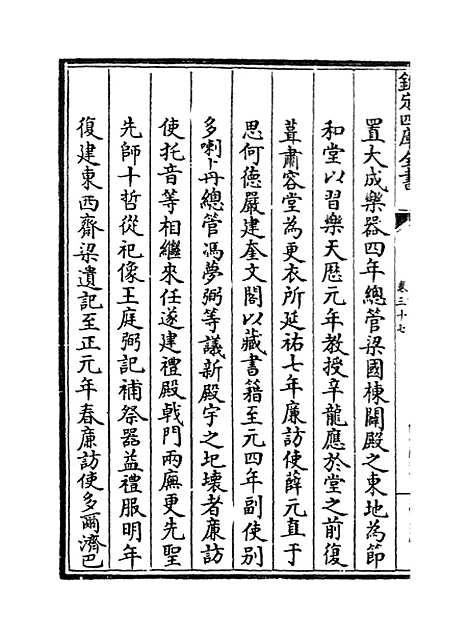 欽定四庫全書
卷三十七
置大成樂器四年總管梁國棟闢殿之東地為節
和堂以習樂天厯元年教授辛龍應於堂之前復
葺肅容堂為更衣所延祐七年廉訪使薛元直于
思何德嚴建奎文閣以藏書籍至元四年副使别
多喇卜丹總管馮夢弼等議新殿宇之圮壊者廉訪
使托音等相繼來任遂建禮殿戟門兩廡更先聖
先師十哲從祀像王庭弼記補祭器益禮服明年
復建東西齋梁遺記至正元年春廉訪使多爾濟巴